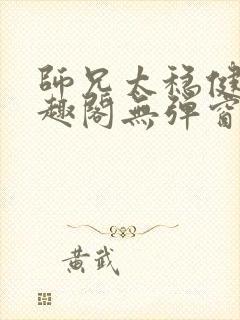 師兄太穩健
趣閣無彈窗
黃武